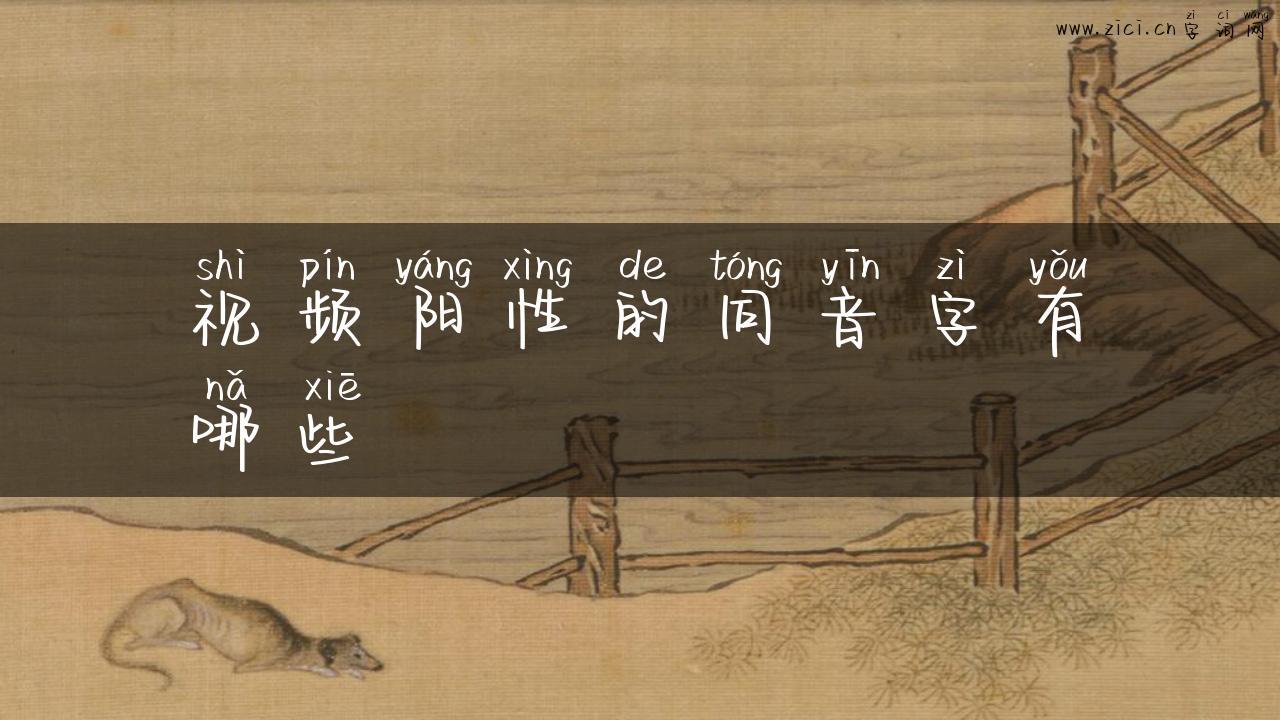 zì cí wǎng
www.zici.cn 字词网
shì pín yáng xìng de tóng yīn zì yǒu
视频阳性的同音字有
nǎ xiē
哪些